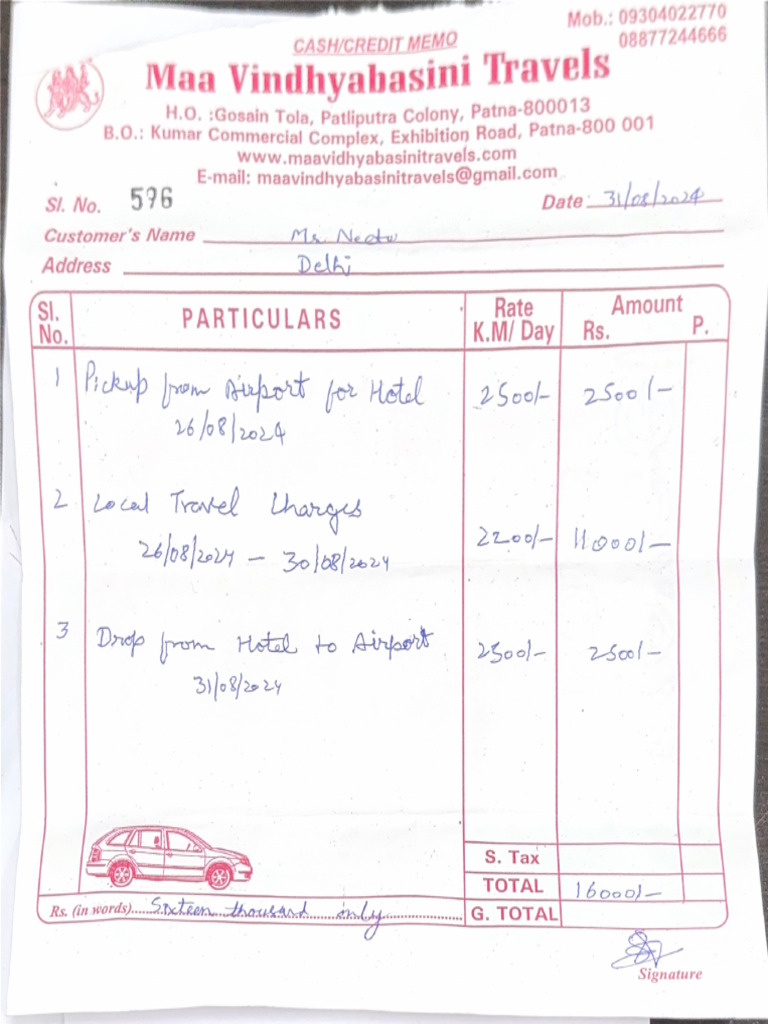 Mob.: 09304022770
08877244666
CASH/CREDIT MEMO
Maa Vindhyabasini Travels
H.O. :Gosain Tola, Patliputra Colony, Patna-800013
B.O.: Kumar Commercial Complex, Exhibition Road, Patna-800 001
www.maavidhyabasinitravels.com
E-mail: maavindhyabasinitravels@gmail.com
Sl. No. 596 Date: 31/08/2024
Customer's Name Ms. Neetu
Address Delhi
Sl. No. PARTICULARS Rate K.M/ Day Amount Rs. P.
1 Pickup from Airport for Hotel 2500/- 2500/-
26/08/2024
2 Local Travel Charges
26/08/2024 - 30/08/2024 2200/- 11000/-
3 Drop from Hotel to Airport 2500/- 2500/-
31/08/2024
S. Tax
TOTAL 16000/-
Rs. (in words) Sixteen thousand only G. TOTAL
Signature